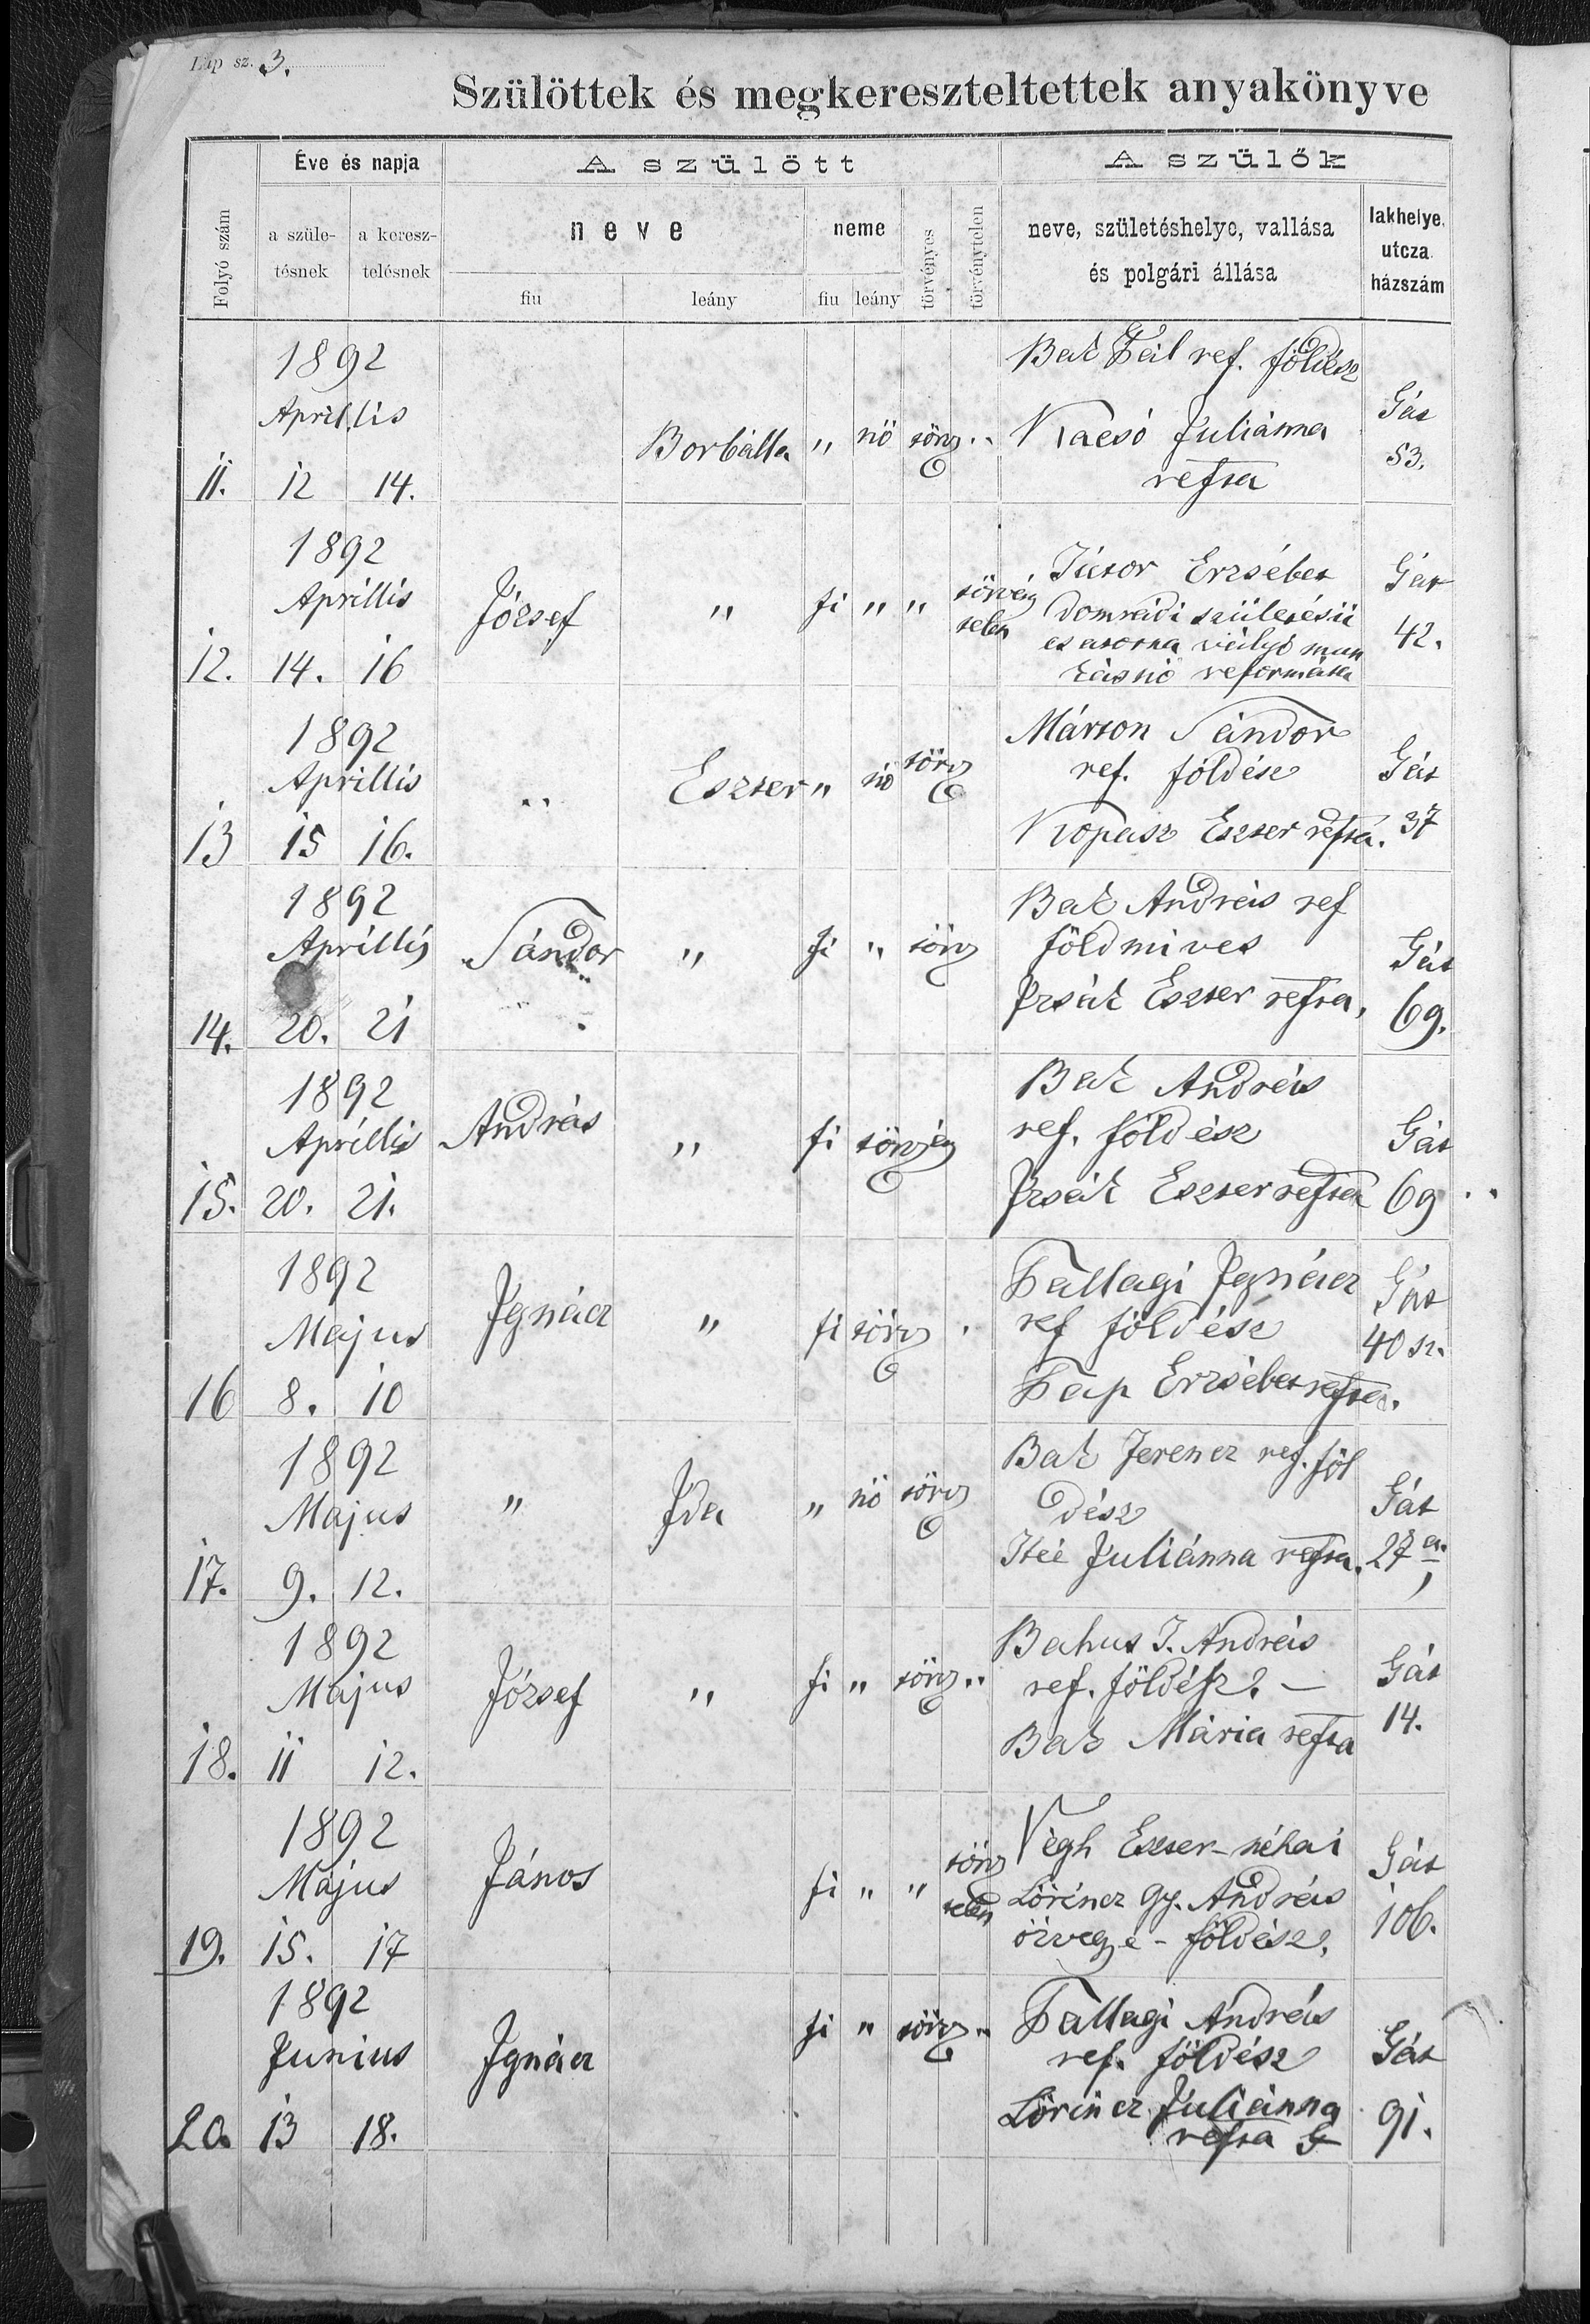 Lap sz. 3.
Szülöttek és megkereszteltettek anyakönyve
Folyó szám
Éve és napja
a születésnek
a keresztelésnek
A szülött
neve
fiu
leány
neme
fiu leány
törvényes
törvénytelen
A szülők
neve, születéshelye, vallása
és polgári állása
lakhelye,
utcza
házszám
1892
Aprillis
11. 12 14.
Borbálla " nö törv "
Bak Pál ref. földész
Kacsó Juliánna
refta
Gát
53.
1892
Aprillis
12. 14. 16
József " fi " " törvény
telen
Erzsébet
domrádi születésü
munkásnő reformáta
Gát
42.
1892
Aprillis
13 15 16.
" Eszter " nö törv
Márton Sándor
ref. földész
Kopasz Eszter refta.
Gát
37
1892
Aprillis
14. 20. 21
Sándor " fi " törv
Bak András ref
földmives
Irsák Eszter refta.
Gát
69.
1892
Aprillis
15. 20. 21.
András " fi törvény
Bak András
ref. földész
Irsák Eszter refta
Gát
69
1892
Majus
16 8. 10
Ignácz " fi törv
Pallagi Ignácz
ref földész
Pap Erzsébet refta.
Gát
40 sz.
1892
Majus
17. 9. 12.
" Ida " nö törv
Bak Ferencz ref. föl
dész
Juliánna refta.
Gát
27 a.
1892
Május
18. 11 12.
József " fi " törv "
Bahus I. András
ref. földész. —
Bak Mária refta
Gát
14.
1892
Május
19. 15. 17
János fi " " törv
telen
Végh Eszter - néhai
Lőrincz Gy. András
özvegye - földész.
Gát
106.
1892
Junius
20. 13 18.
Ignácz fi " törv "
Pallagi András
ref. földész
Lőrincz Juliánna
refta
Gát
91.